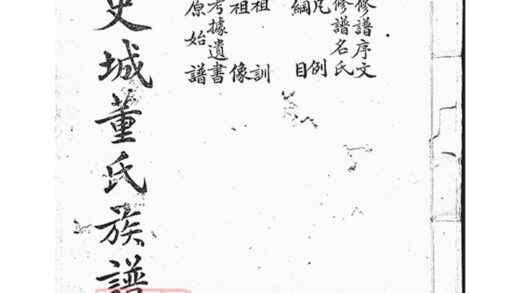 修譜序文
修譜名氏
凡例
綱目
祖訓
祖像
考據遺書
原始譜
史城董氏族譜